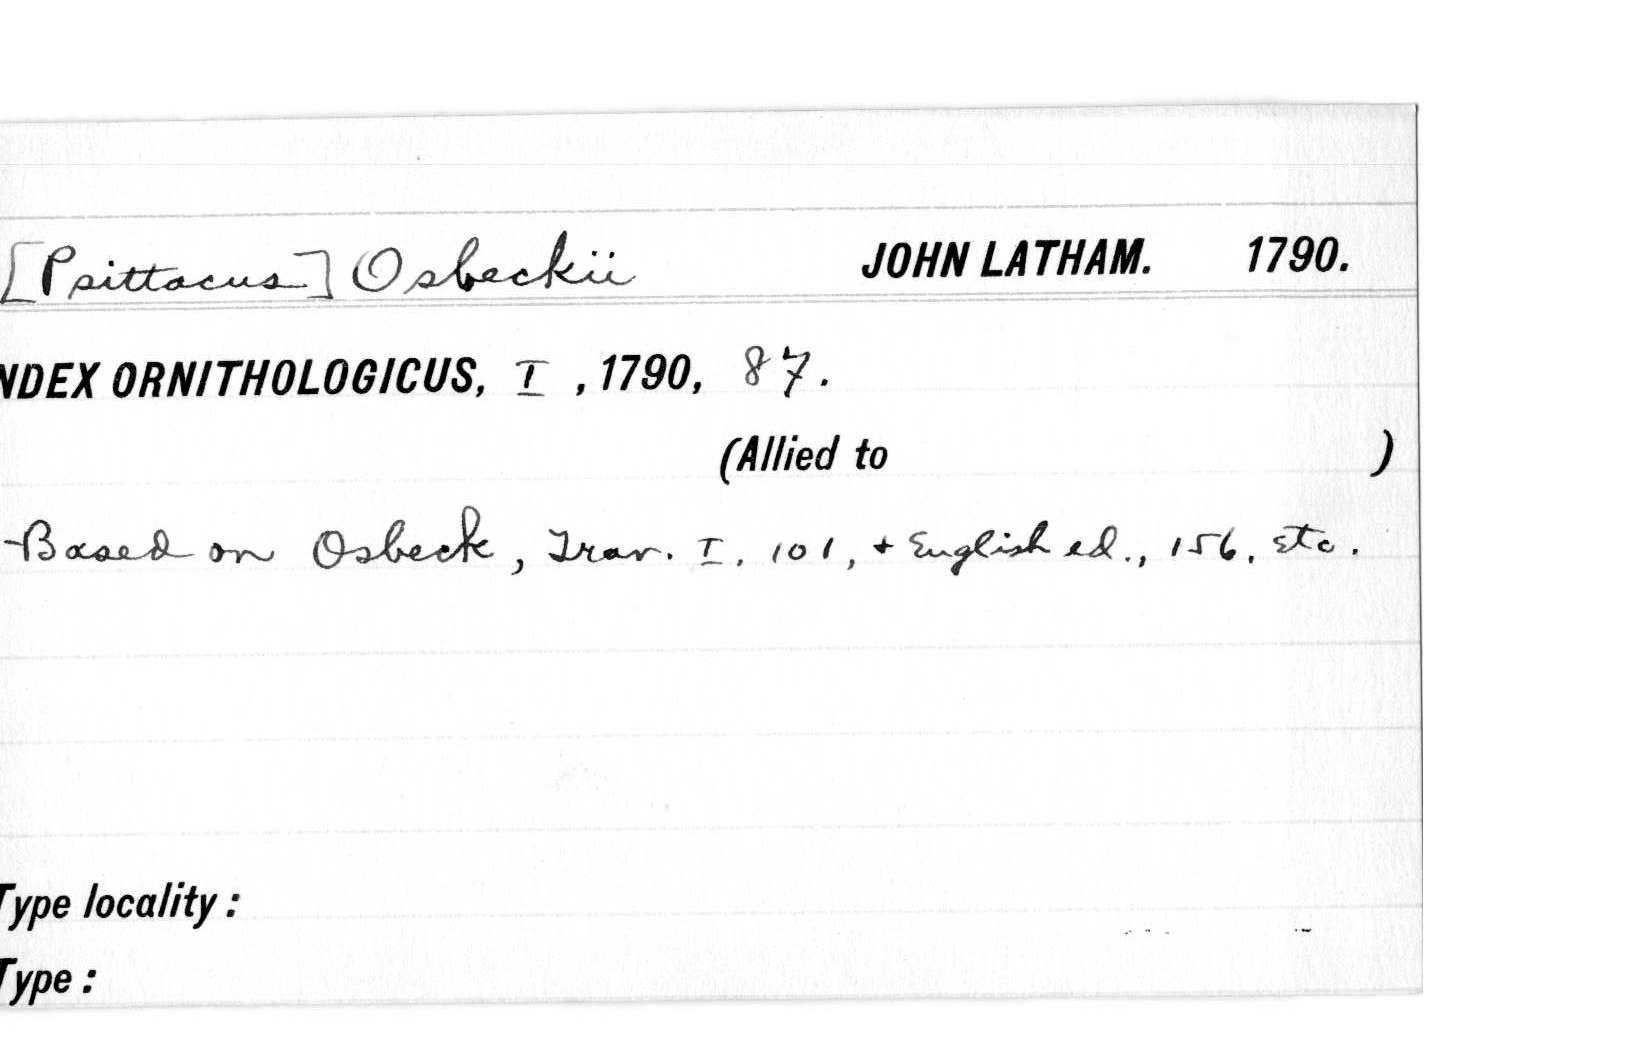 [Psittacus] Osbeckii JOHN LATHAM. 1790.
NDEX ORNITHOLOGICUS, I, 1790, 87.
(Allied to )
Based on Osbeck, Trav. I, 101, + English ed., 156, etc.
Type locality :
Type :